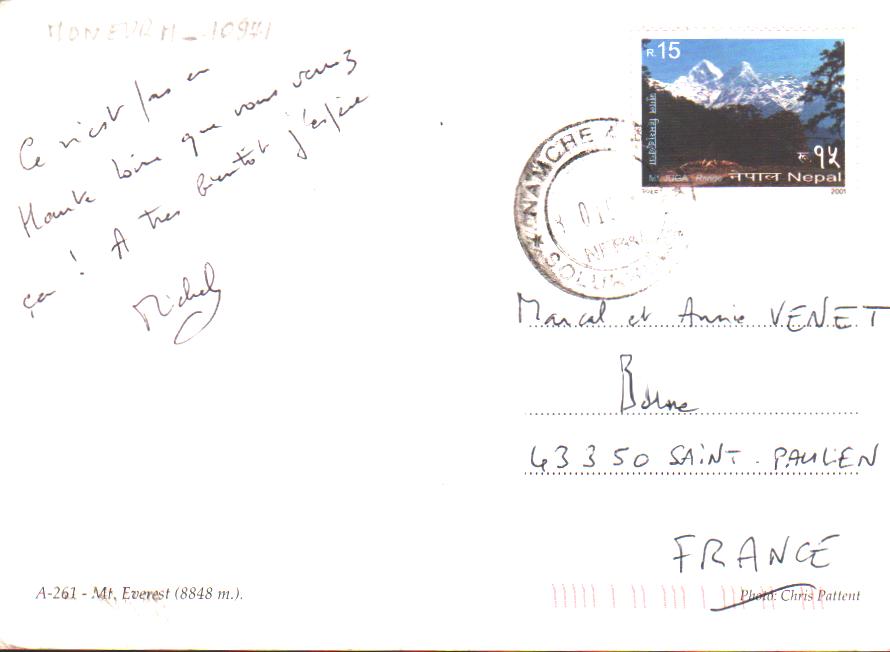 Ce n'est pas en
Haute Loire que vous verrez
ça ! A tres bientôt j'espère
Michel
R.15
रू.१५
Mt. JUGAL Range
नेपाल Nepal
2001
NAMCHE
NEPAL
SOLU
Marcel et Annie VENET
Borne
43350 SAINT-PAULIEN
FRANCE
A-261 - Mt. Everest (8848 m.).
Photo: Chris Pattent